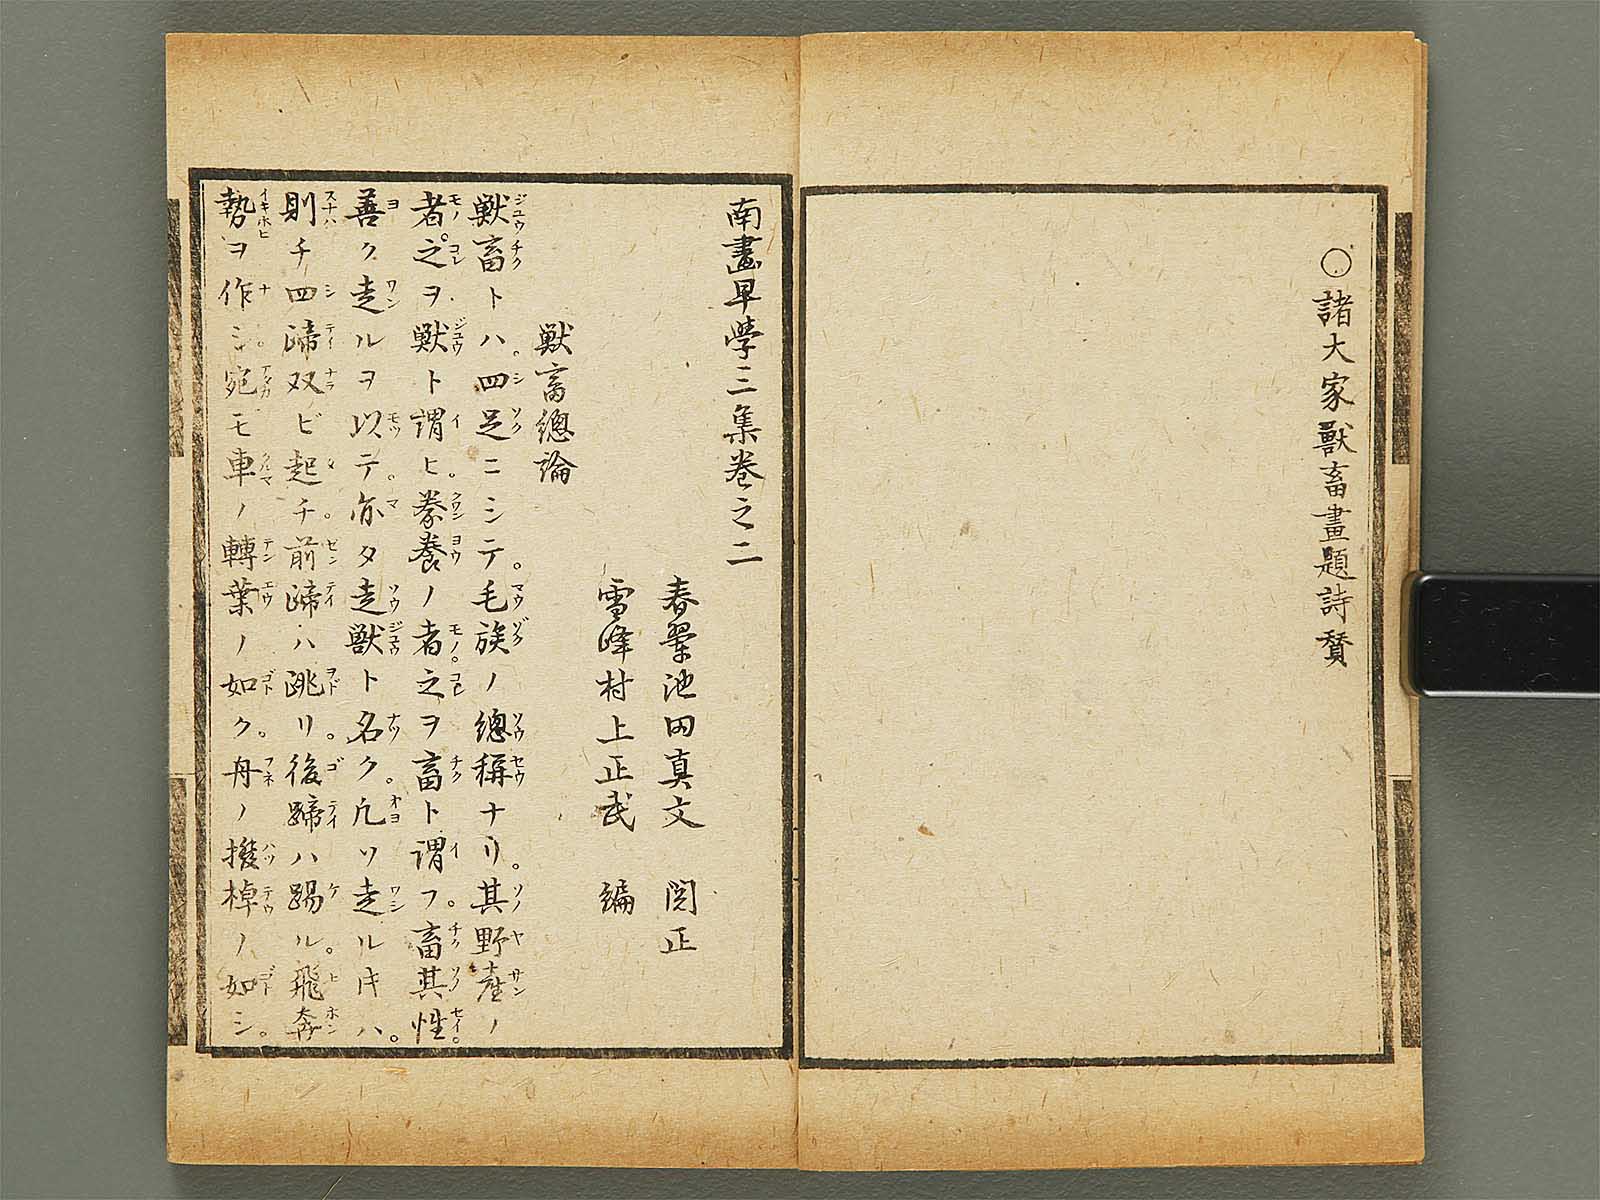 〇諸大家獸畜畫題詩賛
南畫早學三集巻之二
春翠池田真文　閲正
雪峰村上正武　編
獣畜總論
獣畜トハ。四足ニシテ。毛族ノ總稱ナリ。其野産ノ
者。之ヲ獣ト謂ヒ。豢養ノ者。之ヲ畜ト謂フ。畜其性。
善ク走ルヲ以テ。亦タ走獣ト名ク。凡ソ走ルキハ。
則チ四蹄双ビ起チ。前蹄ハ跳リ。後蹄ハ踢ル。飛奔
勢ヲ作シ。宛モ車ノ轉葉ノ如ク。舟ノ撥棹ノ如シ。